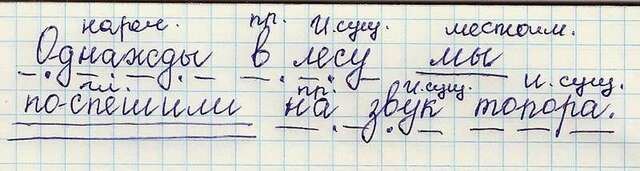 нареч. пр. И.сущ. местоим.
Однажды в лесу мы
гл. пр. И.сущ. И.сущ.
по-спешили на звук топора.